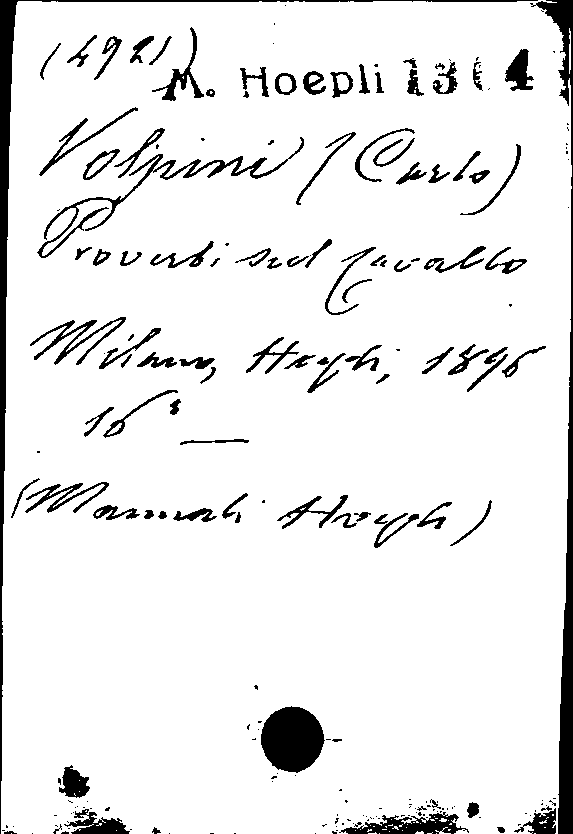 (4921)
M. Hoepli 1314
Volpini (Carlo)
Proverbi sul cavallo
Milano, Hoepli, 1896
16°
(Manuali Hoepli)